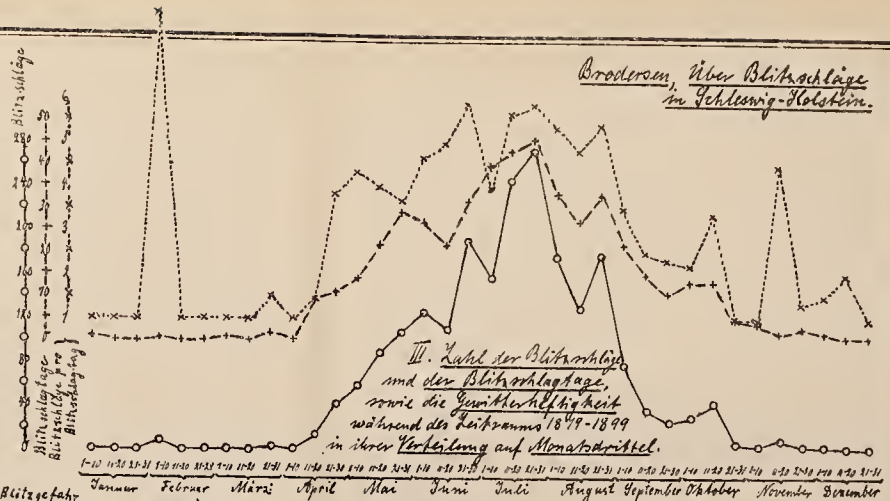 Brodersen, Über Blitzschläge
in Schleswig-Holstein.
Blitzschläge
280
240
200
160
120
80
Blitzschlagtage
Blitzschläge pro
Blitzschlagtag
III. Zahl der Blitzschläge
und der Blitzschlagtage,
sowie die Gewitterheftigkeit
während des Zeitraums 1879-1899
in ihrer Verteilung auf Monatsdrittel.
1-10 11-20 21-31 1-10 11-20 21-29 1-10 11-20 21-31 1-10 11-20 21-30 1-10 11-20 21-31 1-10 11-20 21-30 1-10 11-20 21-31 1-10 11-20 21-31 1-10 11-20 21-30 1-10 11-20 21-31 1-10 11-20 21-30 1-10 11-20 21-31
Januar Februar März April Mai Juni Juli August September Oktober November Dezember
Blitzgefahr